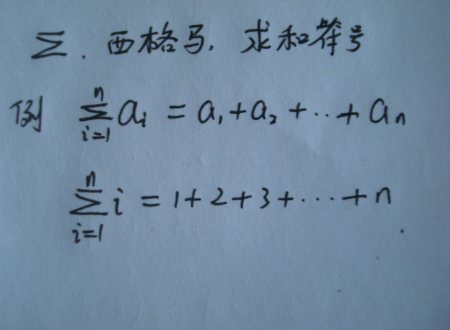 Σ. 西格马, 求和符号
例 \sum_{i=1}^{n} a_i = a_1 + a_2 + ··· + a_n
\sum_{i=1}^{n} i = 1 + 2 + 3 + ··· + n